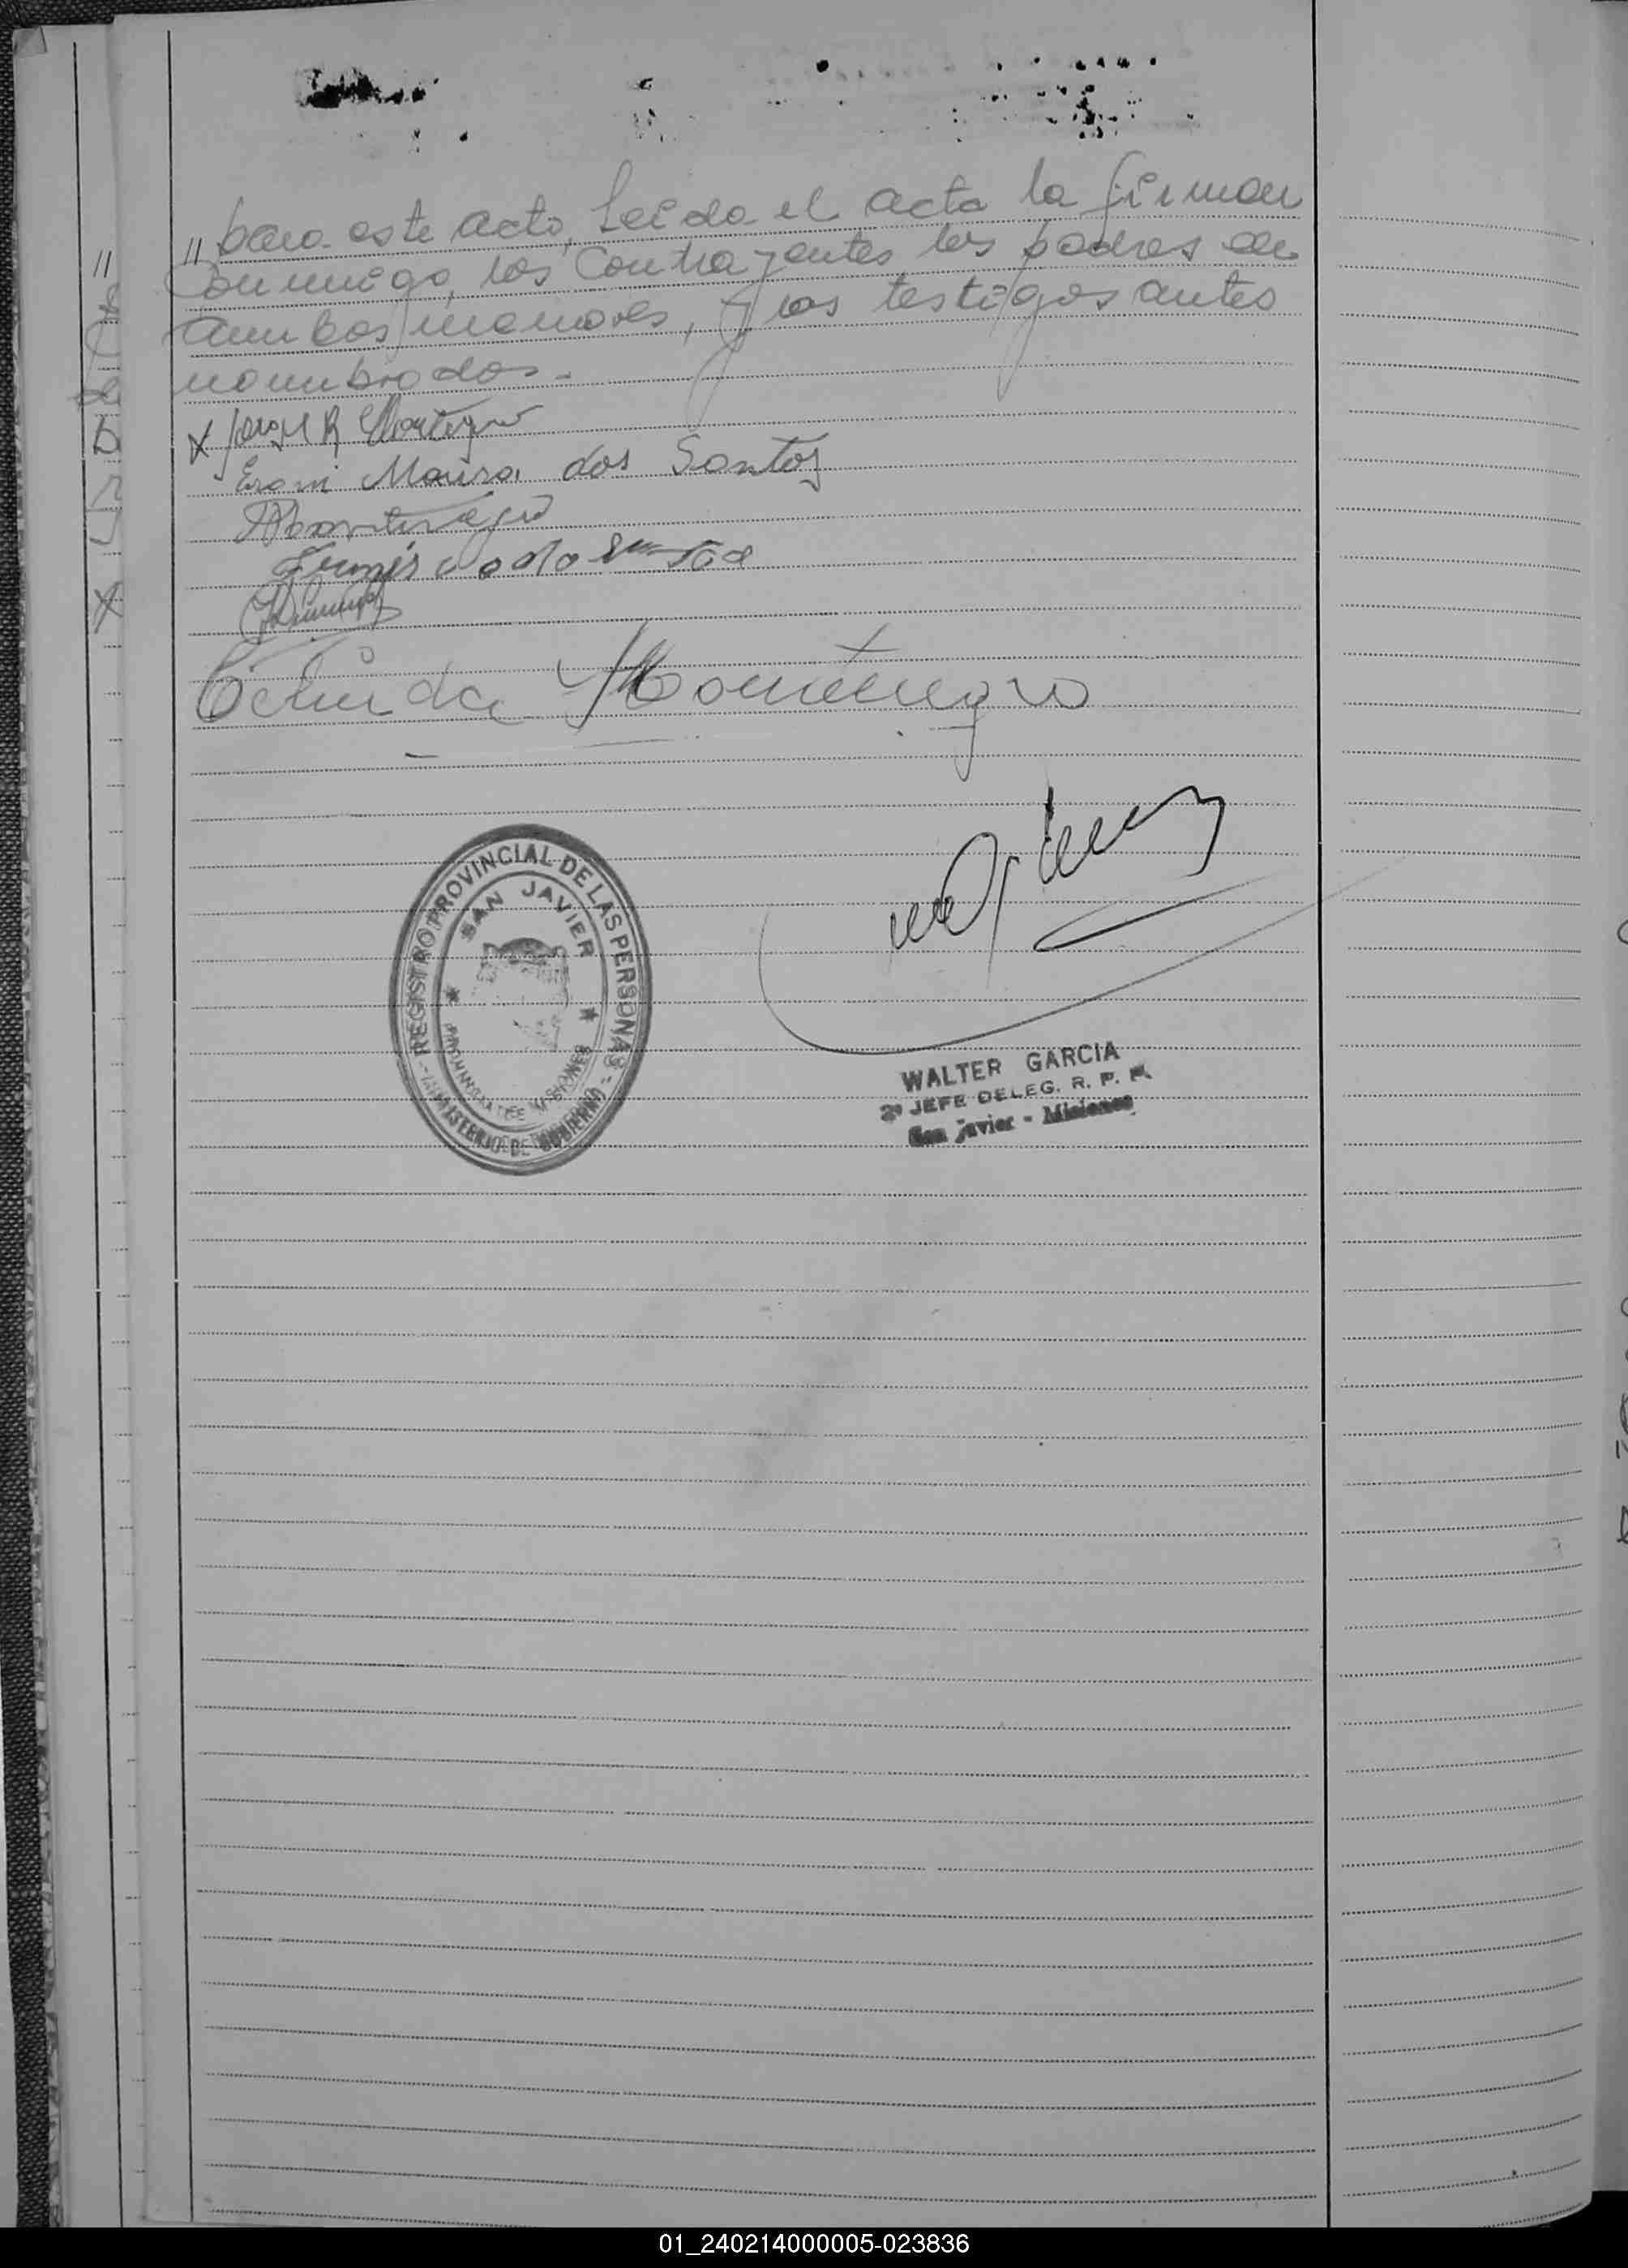 " para este acto, Leida el acta la firman
Conmigo, los Contrayentes los padres de
ambos menores, y los testigos antes
nombrados.-
x Jorge R Montegro
Erani Maira dos Santos
Celinda Montenegro
REGISTRO PROVINCIAL DE LAS PERSONAS
SAN JAVIER
PROVINCIA DE MISIONES
- MINISTERIO DE GOBIERNO -
WALTER GARCIA
2º JEFE DELEG. R. P. P.
San Javier - Misiones
01_240214000005-023836